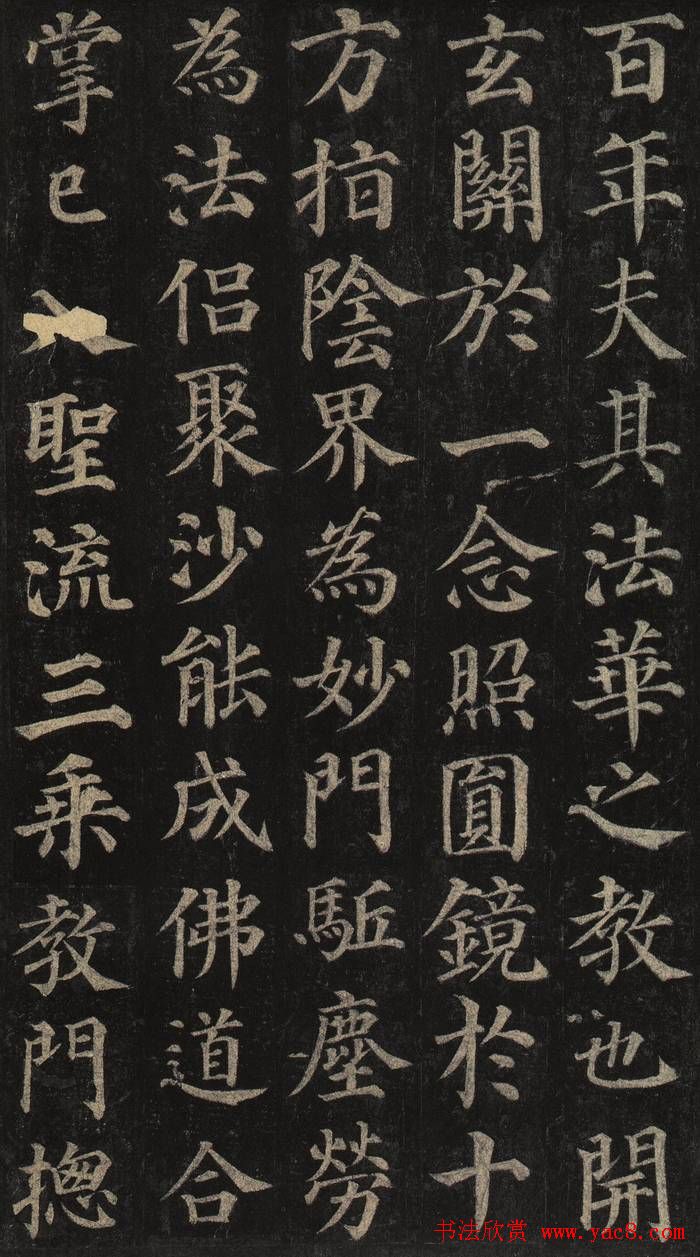 百年夫其法華之教也開
玄關於一念照圓鏡於十
方指陰界為妙門駈塵勞
為法侣聚沙能成佛道合
掌已入聖流三乗教門揔
书法欣赏 www.yac8.com